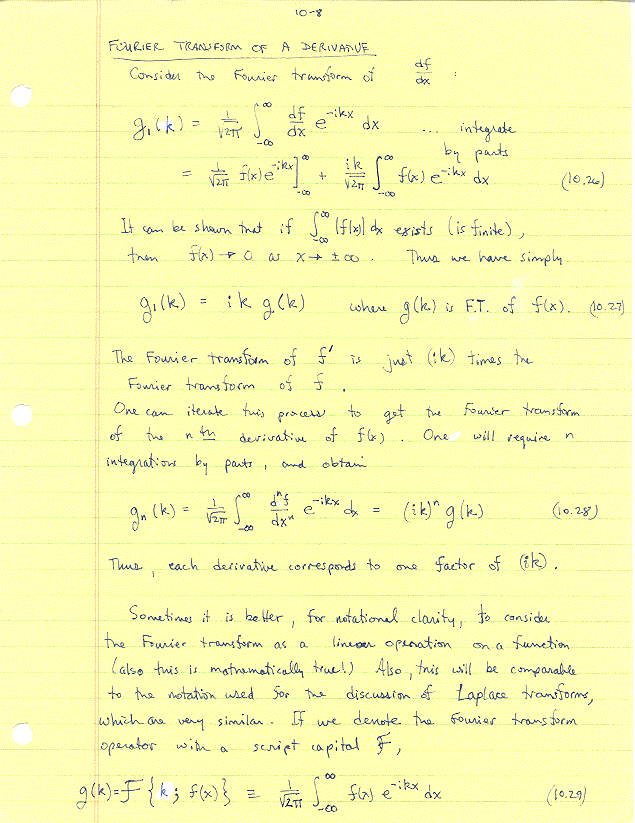 10-8
FOURIER TRANSFORM OF A DERIVATIVE
Consider the Fourier transform of df/dx :
g₁(k) = 1/√2π ∫_{-∞}^{∞} df/dx e^{-ikx} dx ... integrate
by parts
= 1/√2π f(x) e^{-ikx} ]_{-∞}^{∞} + ik/√2π ∫_{-∞}^{∞} f(x) e^{-ikx} dx (10.26)
It can be shown that if ∫_{-∞}^{∞} |f(x)| dx exists (is finite),
then f(x) → 0 as x → ±∞. Thus we have simply
g₁(k) = ik g(k) where g(k) is F.T. of f(x). (10.27)
The Fourier transform of f' is just (ik) times the
Fourier transform of f.
One can iterate this process to get the Fourier transform
of the nth derivative of f(x). One will require n
integrations by parts, and obtain
gₙ(k) = 1/√2π ∫_{-∞}^{∞} dⁿf/dxⁿ e^{-ikx} dx = (ik)ⁿ g(k) (10.28)
Thus, each derivative corresponds to one factor of (ik).
Sometimes it is better, for notational clarity, to consider
the Fourier transform as a linear operation on a function
(also this is mathematically true!) Also, this will be comparable
to the notation used for the discussion of Laplace transforms,
which are very similar. If we denote the Fourier transform
operator with a script capital F,
g(k) = F{k; f(x)} ≡ 1/√2π ∫_{-∞}^{∞} f(x) e^{-ikx} dx (10.29)